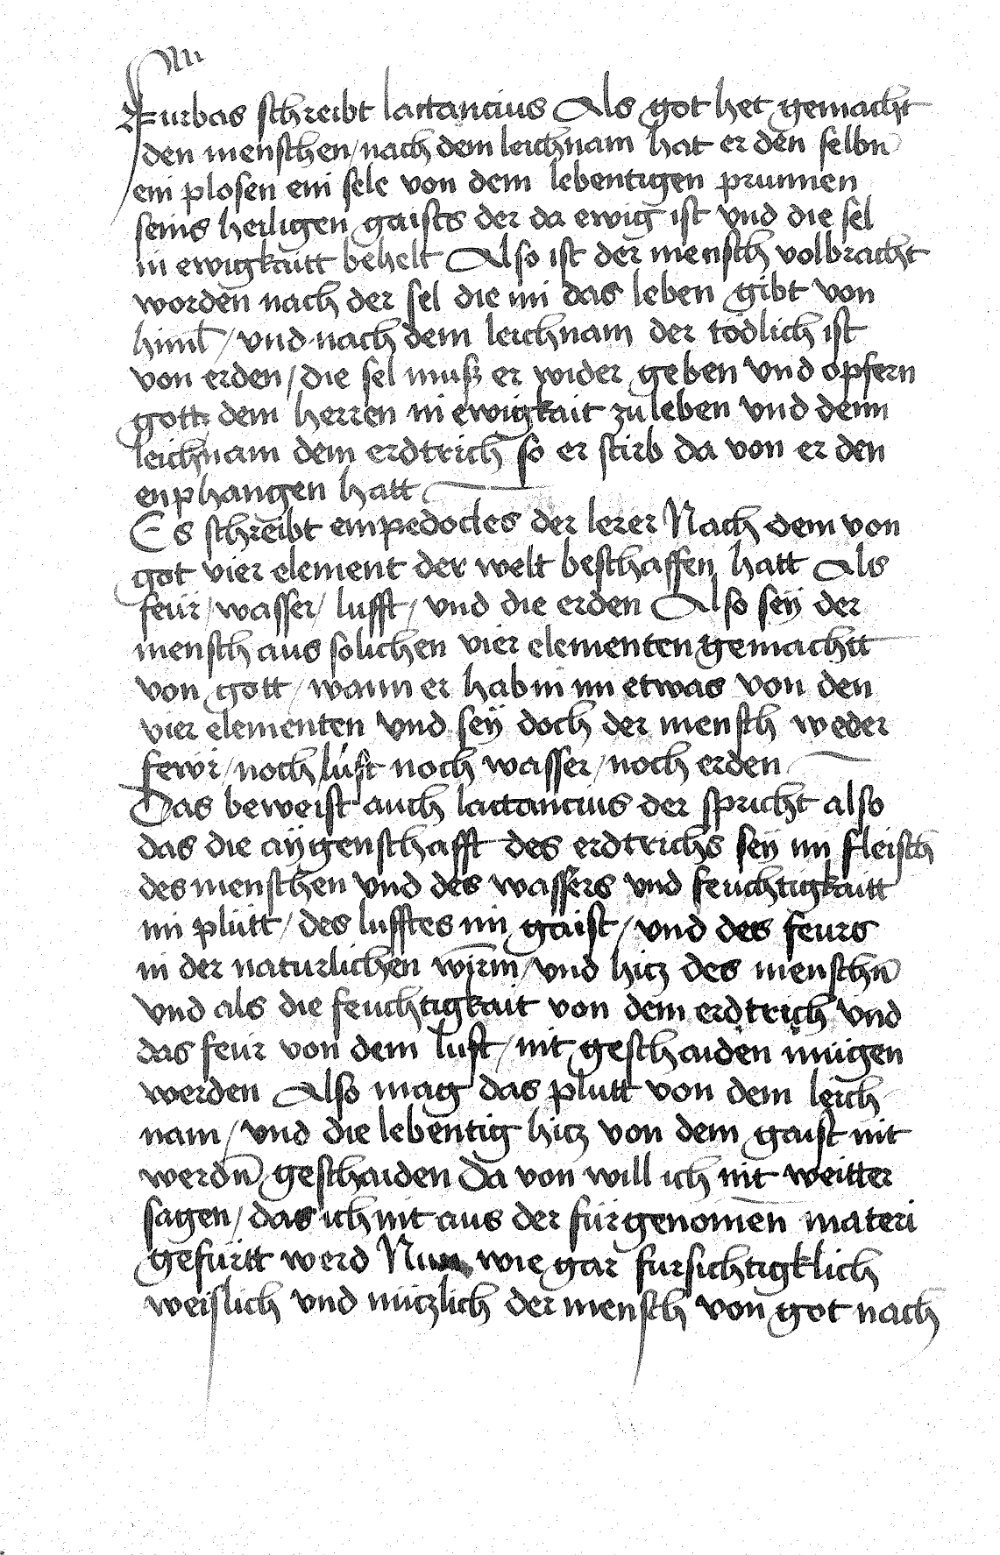 Furbas schreibt lactancius Als got het gemacht
den menschen / nach dem leichnam hat er den selbn
ein plosen ein sele von dem lebentigen prunnen
seins heiligen gaists der da ewig ist vnd die sel
in ewigkaitt behelt Also ist der mensch volbracht
worden nach der sel die im das leben gibt von
himl / vnd nach dem leichnam der tödlich ist
von erden / die sel muß er wider geben vnd opfern
gott dem herren in ewigkait zu leben vnd denn
leichnam dem erdtrich so er stirb da von er den
enphangen hatt
Es schreibt empedocles der lerer Nach dem von
got vier element der welt beschaffen hatt Als
feür / wasser / lufft / vnd die erden Also seÿ der
mensch aus solichen vier elementen gemachtt
von gott / wann er hab in im etwas von den
vier elementen vnd seÿ doch der mensch weder
fewr / noch luft noch wasser / noch erden
Das beweist auch lactancius der spricht also
das die aÿgenschafft des erdtrichs seÿ im fleisch
des menschen vnd des wassers vnd feuchtigkaitt
im plütt / des lufftes im gaist / vnd des feurs
in der naturlichen wirm / vnd hicz des menschn
vnd als die feuchtigkait von dem erdtrich vnd
das feür von dem luft / nit geschaiden mügen
werden Also mag das plutt von dem leich
nam / vnd die lebentig hicz von dem gaist nit
werdn geschaiden Da von will ich nit weitter
sagen / das ich nit aus der fürgenomen materi
gefürtt werd Nun wie gar fursichtigklich
weislich vnd nüczlich der mensch von got nach